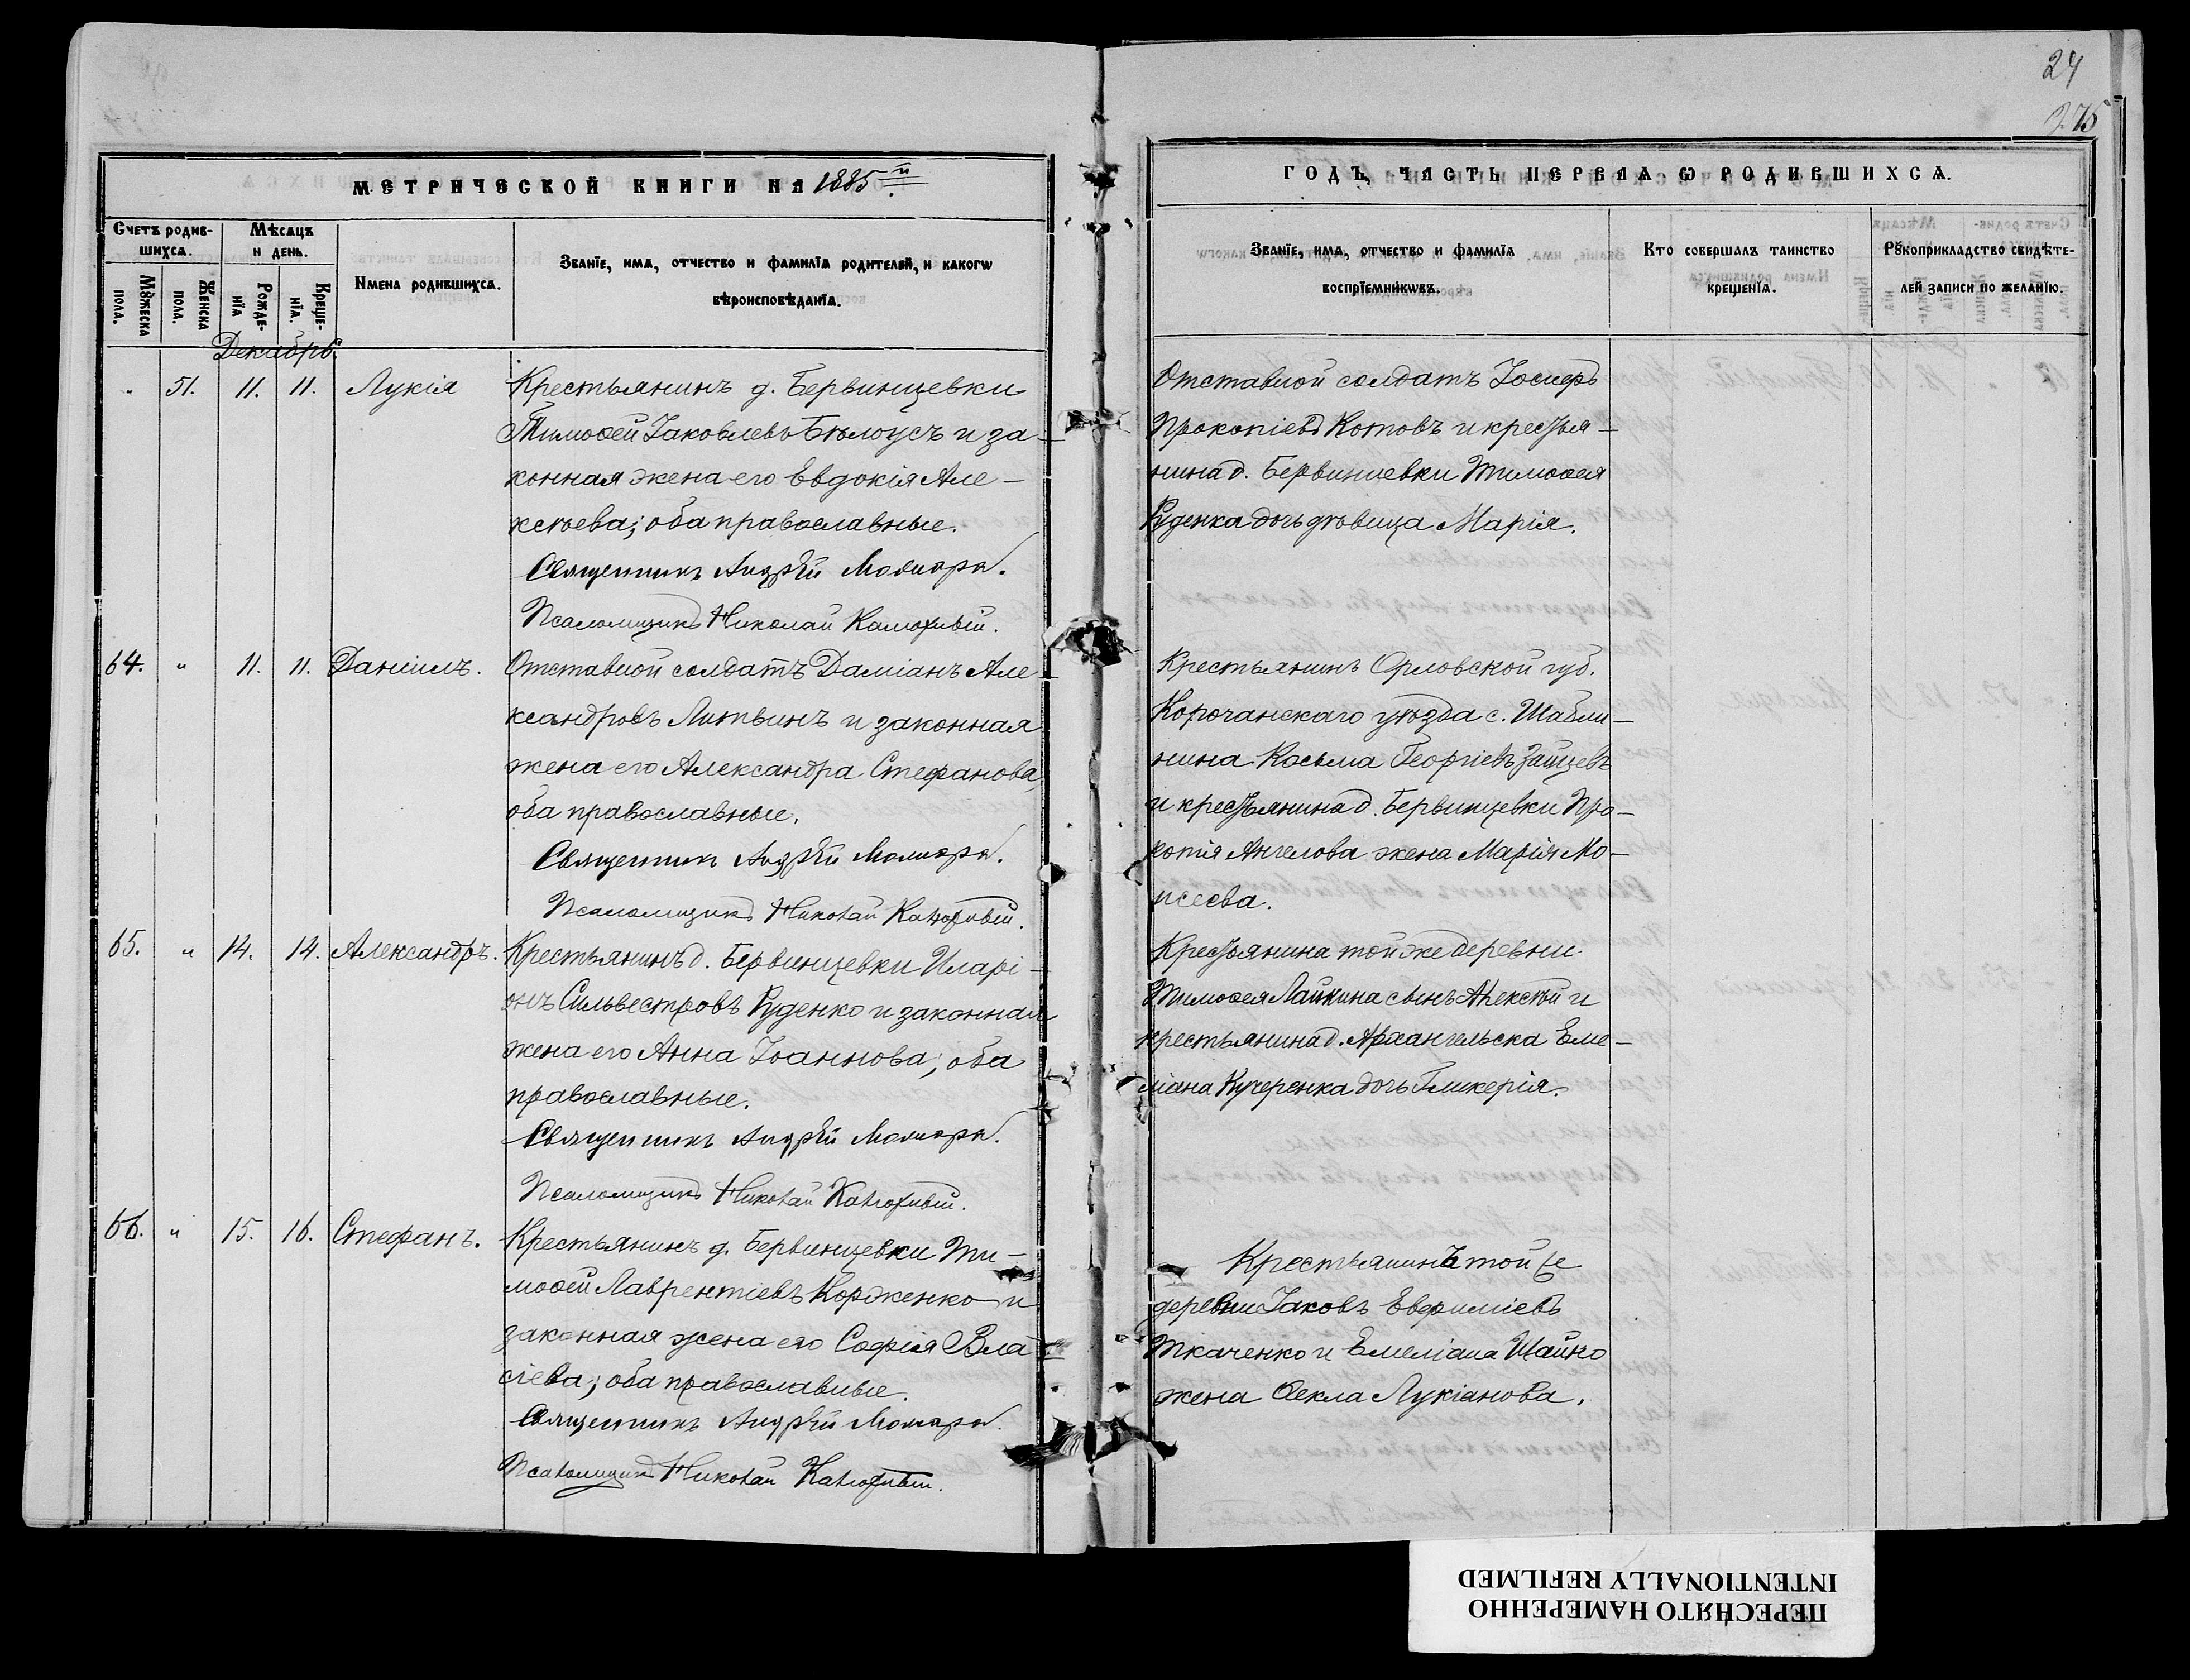 24
275
МЕТРИЧЕСКОЙ КНИГИ НА 1885й
ГОДЪ, ЧАСТЬ ПЕРВАЯ Ѡ РОДИВШИХСѦ.
Счетъ родив-
шихсѧ.
Мѣсѧцъ
и день.
Мꙋжеска пола.
Женска пола.
Рожде-
нїѧ
Креще-
нїѧ.
Имена родившихсѧ.
Званїе, имѧ, отчество и фамилїѧ родителей, и какогѡ
вѣроисповѣданїѧ.
Званїе, имѧ, отчество и фамилїѧ
воспрїемникѡвъ.
Кто совершалъ таинство
крещенїѧ.
Рꙋкоприкладство свидѣте-
лей записи по желанїю.
Декабрь.
" 51. 11. 11. Лукія
Крестьянинъ д. Бервинцевки
Тимоѳей Іаковлевъ Бѣлоусъ и за-
конная жена его Евдокія Але-
ксѣева; оба православные.
Священникъ Андрѣй
Псаломщикъ Николай
Отставной солдатъ Іосифъ
Прокопіевъ Котовъ и крестья-
нина д. Бервинцевки Тимоѳея
Руденка дочь дѣвица Марія.
64. " 11. 11. Даніилъ.
Отставной солдатъ Даміанъ Але-
ксандровъ Литвинъ и законная
жена его Александра Стефанова,
оба православные.
Священникъ Андрѣй
Псаломщикъ Николай
Крестьянинъ Орловской губ.
Корочанскаго уѣзда с. Шабли-
нина Косьма Георгіевъ Зайцевъ
и крестьянина д. Бервинцевки Про-
копія Ангелова жена Марія Мо-
исеева.
65. " 14. 14. Александръ.
Крестьянинъ д. Бервинцевки Иларі-
онъ Сильвестровъ Руденко и законная
жена его Анна Іоаннова; оба
православные.
Священникъ Андрѣй
Псаломщикъ Николай
Крестьянина той же деревни
Тимоѳея Лайкина сынъ Алексѣй и
крестьянина д. Архангельска Еме-
ліана Кучеренка дочь Гликерія.
66. " 15. 16. Стефанъ.
Крестьянинъ д. Бервинцевки Ти-
моѳей Лаврентіевъ Корженко и
законная жена его Софія Вла-
сіева; оба православные.
Священникъ Андрѣй
Псаломщикъ Николай
Крестьянинъ той же
деревни Іаковъ Евфиміевъ
Ткаченко и Емеліана Шайко
жена Ѳекла Лукіанова.
ПЕРЕСНЯТО НАМЕРЕННО
INTENTIONALLY REFILMED